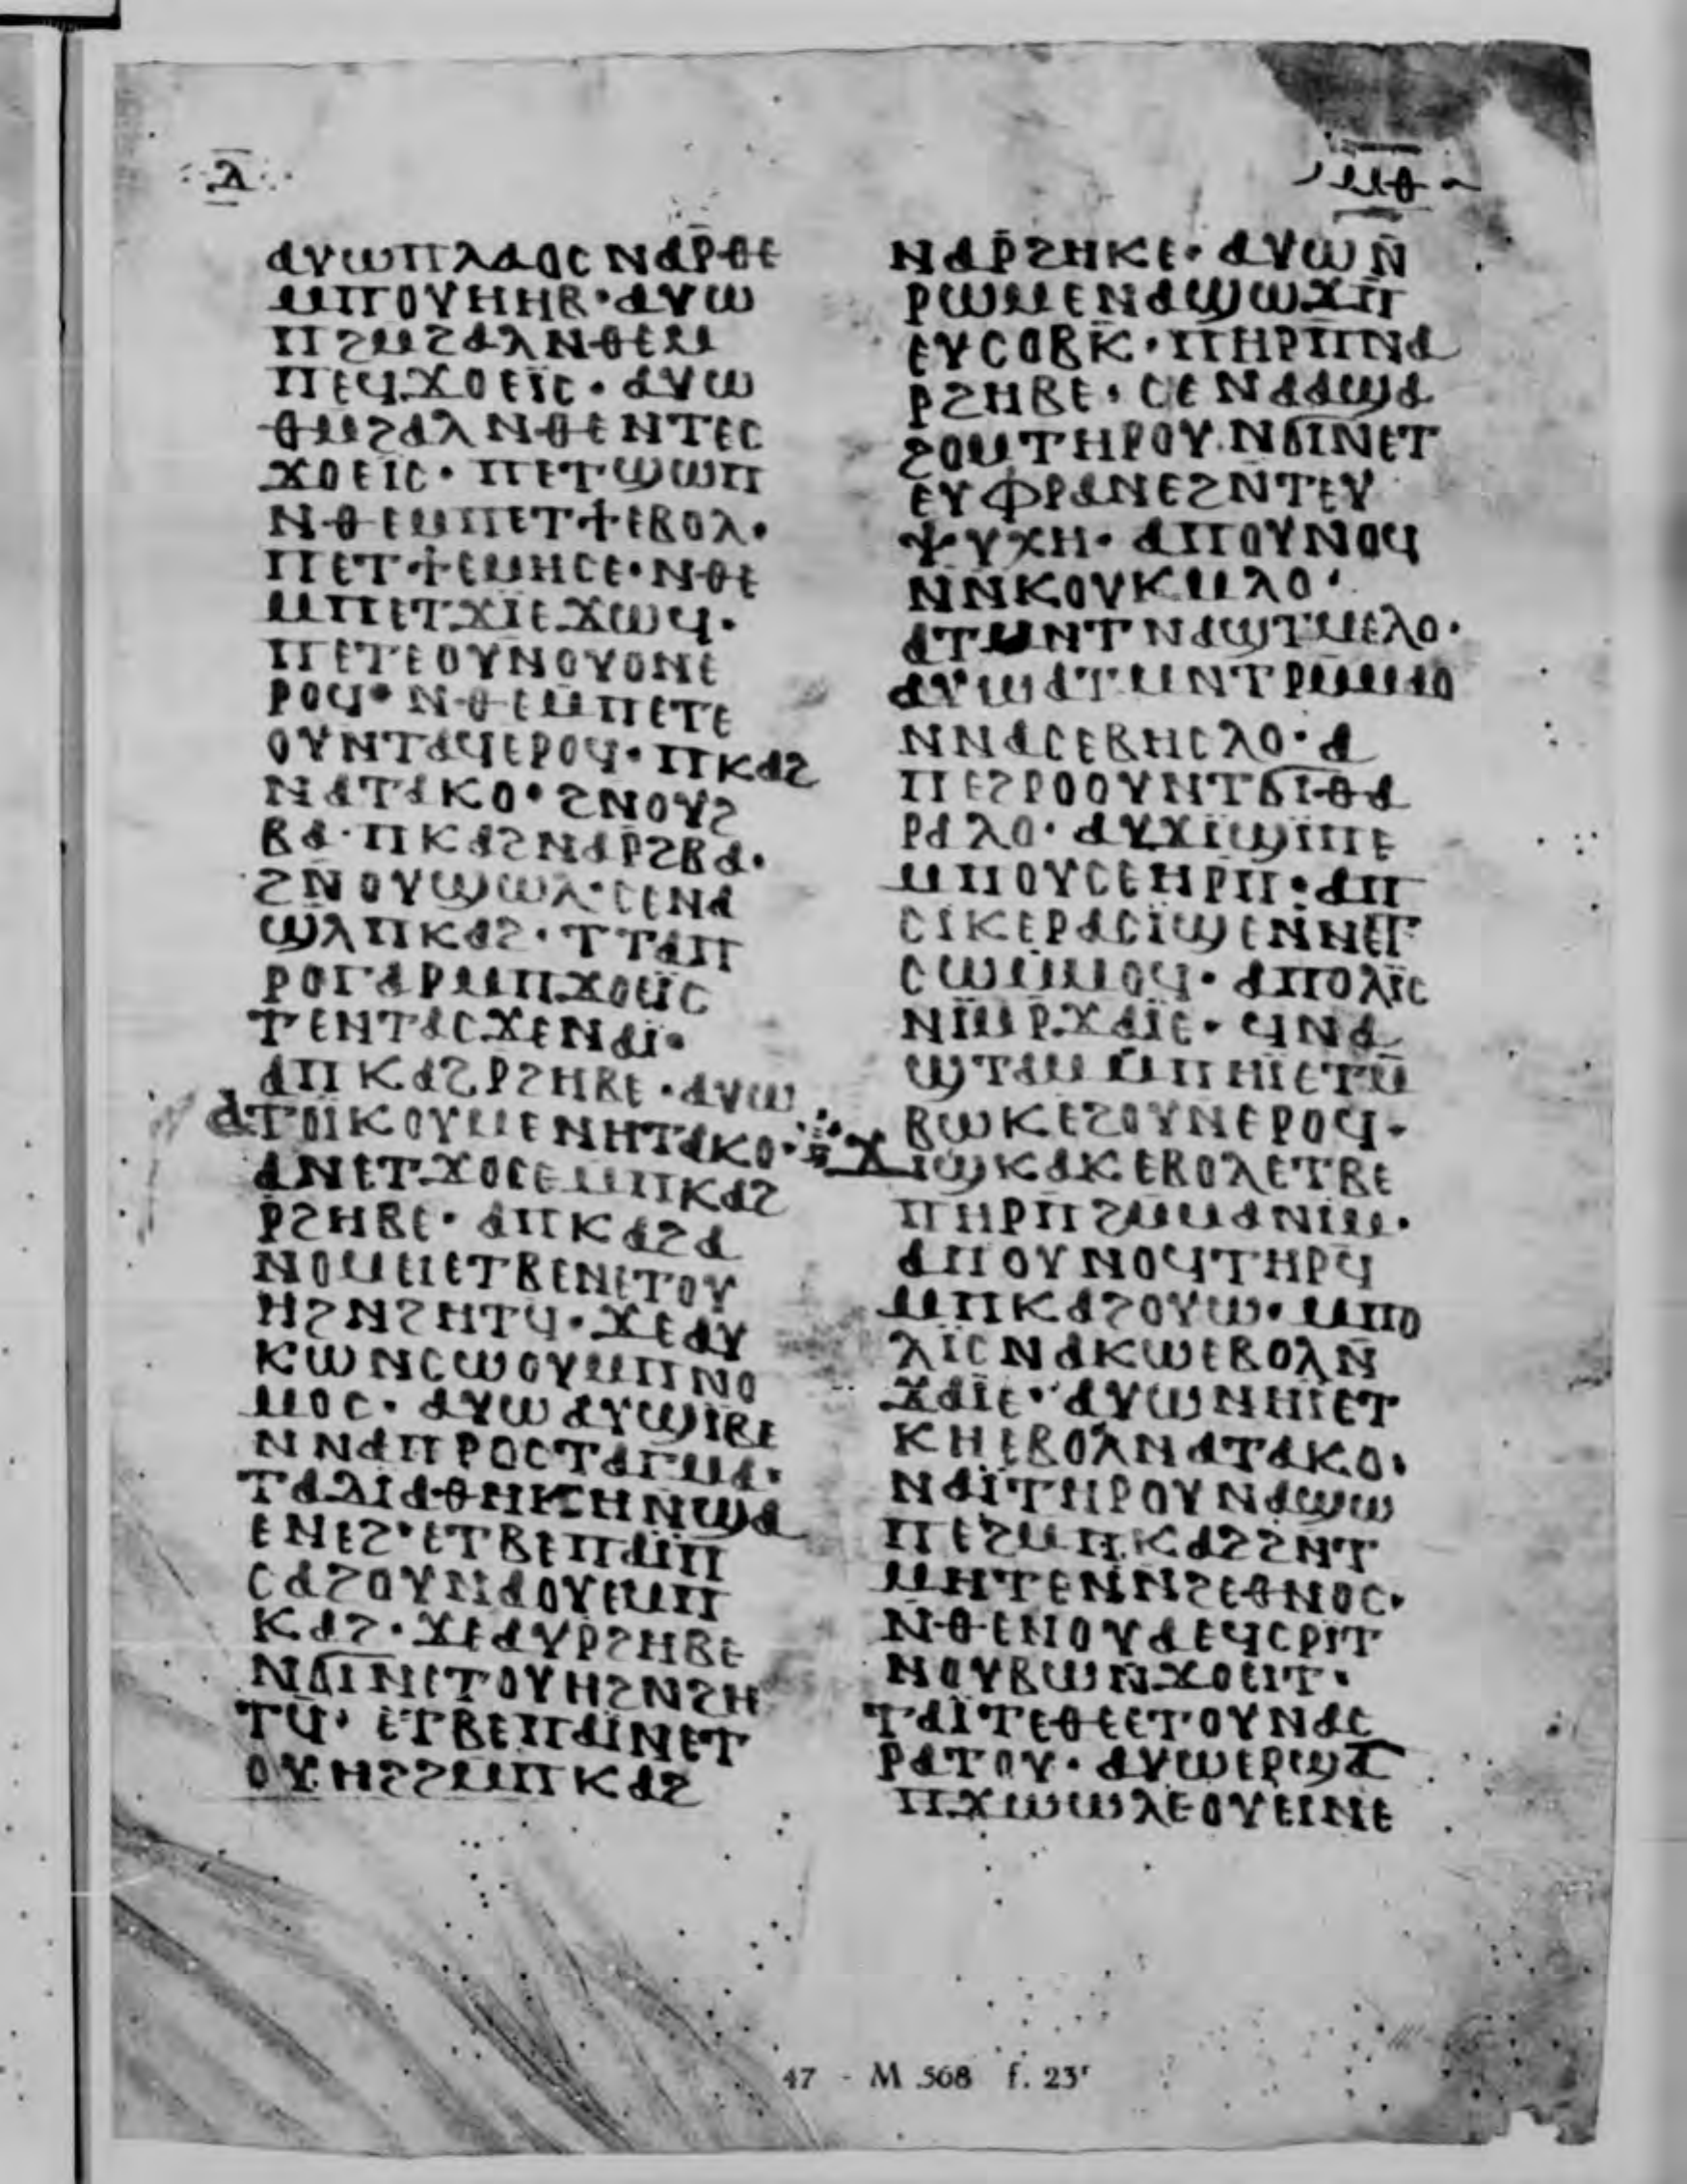 ⲗ
ⲙⲑ
ⲁⲩⲱⲡⲗⲁⲟⲥⲛⲁⲣ̄ⲑⲉ
ⲙⲡⲟⲩⲏⲏⲃ·ⲁⲩⲱ
ⲡϩⲙϩⲁⲗⲛⲑⲉⲙ
ⲡⲉϥϫⲟⲉⲓⲥ·ⲁⲩⲱ
ⲑⲙϩⲁⲗⲛⲑⲉⲛⲧⲉⲥ
ϫⲟⲉⲓⲥ·ⲡⲉⲧϣⲱⲡ
ⲛⲑⲉⲙⲡⲉⲧϯⲉⲃⲟⲗ·
ⲡⲉⲧϯⲉⲙⲏⲥⲉ·ⲛⲑⲉ
ⲙⲡⲉⲧϫⲓⲉϫⲱϥ·
ⲡⲉⲧⲉⲟⲩⲛⲟⲩⲟⲛⲉ
ⲣⲟϥ·ⲛⲑⲉⲙⲡⲉⲧⲉ
ⲟⲩⲛⲧⲁϥⲉⲣⲟϥ·ⲡⲕⲁϩ
ⲛⲁⲧⲁⲕⲟ·ϩⲛⲟⲩϩ
ⲃⲁ·ⲡⲕⲁϩⲛⲁⲣ̄ϩⲃⲁ·
ϩⲛ̄ⲟⲩϣⲱⲗ·ⲥⲉⲛⲁ
ϣⲗⲡⲕⲁϩ·ⲧⲧⲁⲡ
ⲣⲟⲅⲁⲣⲙⲡϫⲟⲉⲓⲥ
ⲧⲉⲛⲧⲁⲥϫⲉⲛⲁⲓ̈·
ⲁⲡⲕⲁϩⲣϩⲏⲃⲉ·ⲁⲩⲱ
ⲁⲧⲟⲓⲕⲟⲩⲙⲉⲛⲏⲧⲁⲕⲟ·
ⲁⲛⲉⲧϫⲟⲥⲉⲙⲡⲕⲁϩ
ⲣϩⲏⲃⲉ·ⲁⲡⲕⲁϩⲁ
ⲛⲟⲙⲉⲓⲉⲧⲃⲉⲛⲉⲧⲟⲩ
ⲏϩⲛϩⲏⲧϥ·ϫⲉⲁⲩ
ⲕⲱⲛⲥⲱⲟⲩⲙⲡⲛⲟ
ⲙⲟⲥ·ⲁⲩⲱⲁⲩϣⲓⲃⲉ
ⲛⲛⲁⲡⲣⲟⲥⲧⲁⲅⲙⲁ·
ⲧⲇⲓⲁⲑⲏⲕⲏⲛϣⲁ
ⲉⲛⲉϩ·ⲉⲧⲃⲉⲡⲁⲓ̈ⲡ
ⲥⲁϩⲟⲩⲛⲁⲟⲩⲉⲙⲡ
ⲕⲁϩ·ϫⲉⲁⲩⲣϩⲏⲃⲉ
ⲛϭⲓⲛⲉⲧⲟⲩⲏϩⲛϩⲏ
ⲧϥ·ⲉⲧⲃⲉⲡⲁⲓ̈ⲛⲉⲧ
ⲟⲩⲏϩϩⲙⲡⲕⲁϩ
ⲛⲁⲣ̄ϩⲏⲕⲉ·ⲁⲩⲱⲛ̄
ⲣⲱⲙⲉⲛⲁϣⲱϫⲡ
ⲉⲩⲥⲟⲃⲕ̄·ⲡⲏⲣⲡⲛⲁ
ⲣϩⲏⲃⲉ·ⲥⲉⲛⲁⲁϣⲁ
ϩⲟⲙⲧⲏⲣⲟⲩⲛϭⲓⲛⲉⲧ
ⲉⲩⲫⲣⲁⲛⲉϩⲛⲧⲉⲩ
ⲯⲩⲭⲏ·ⲁⲡⲟⲩⲛⲟϥ
ⲛⲛⲕⲟⲩⲕⲙⲗⲟ·
ⲁⲧⲙⲛⲧⲛⲁϣⲧⲙⲉⲗⲟ·
ⲁⲩⲱⲁⲧⲙⲛⲧⲣⲙⲙⲁⲟ
ⲛⲛⲁⲥⲉⲃⲏⲥⲗⲟ·ⲁ
ⲡⲉϩⲣⲟⲟⲩⲛⲧϭⲓⲑⲁ
ⲣⲁⲗⲟ·ⲁⲩϫⲓϣⲓⲡⲉ
ⲙⲡⲟⲩⲥⲉⲏⲣⲡ·ⲁⲡ
ⲥⲓⲕⲉⲣⲁⲥⲓ̈ϣⲉⲛⲛⲉⲧ
ⲥⲱⲙⲙⲟϥ·ⲁⲡⲟⲗⲓ̈ⲥ
ⲛⲓⲙⲣϫⲁⲓ̈ⲉ·ϥⲛⲁ
ϣⲧⲁⲙⲙⲡⲏⲓⲉⲧⲙ̄
ⲃⲱⲕⲉϩⲟⲩⲛⲉⲣⲟϥ·
ϫⲓϣⲕⲁⲕⲉⲃⲟⲗⲉⲧⲃⲉ
ⲡⲏⲣⲡϩⲙⲙⲁⲛⲓⲙ·
ⲁⲡⲟⲩⲛⲟϥⲧⲏⲣϥ
ⲙⲡⲕⲁϩⲟⲩⲱ·ⲙⲡⲟ
ⲗⲓⲥⲛⲁⲕⲱⲉⲃⲟⲗⲛ̄
ϫⲁⲓⲉ·ⲁⲩⲱⲛⲏⲓⲉⲧ
ⲕⲏⲉⲃⲟⲗⲛⲁⲧⲁⲕⲟ·
ⲛⲁⲓ̈ⲧⲏⲣⲟⲩⲛⲁϣⲱ
ⲡⲉϩⲙⲡⲕⲁϩϩⲛⲧ
ⲙⲏⲧⲉⲛⲛϩⲉⲑⲛⲟⲥ·
ⲛⲑⲉⲛⲟⲩⲁⲉϥⲥⲣⲓⲧ
ⲛⲟⲩⲃⲱⲛϫⲟⲉⲓⲧ·
ⲧⲁⲓ̈ⲧⲉⲑⲉⲉⲧⲟⲩⲛⲁⲥ
ⲣⲁⲧⲟⲩ·ⲁⲩⲱⲉⲣϣⲁ
ⲡϫⲱⲱⲗⲉⲟⲩⲉⲓⲛⲉ
47 - M 568 f. 23ʳ